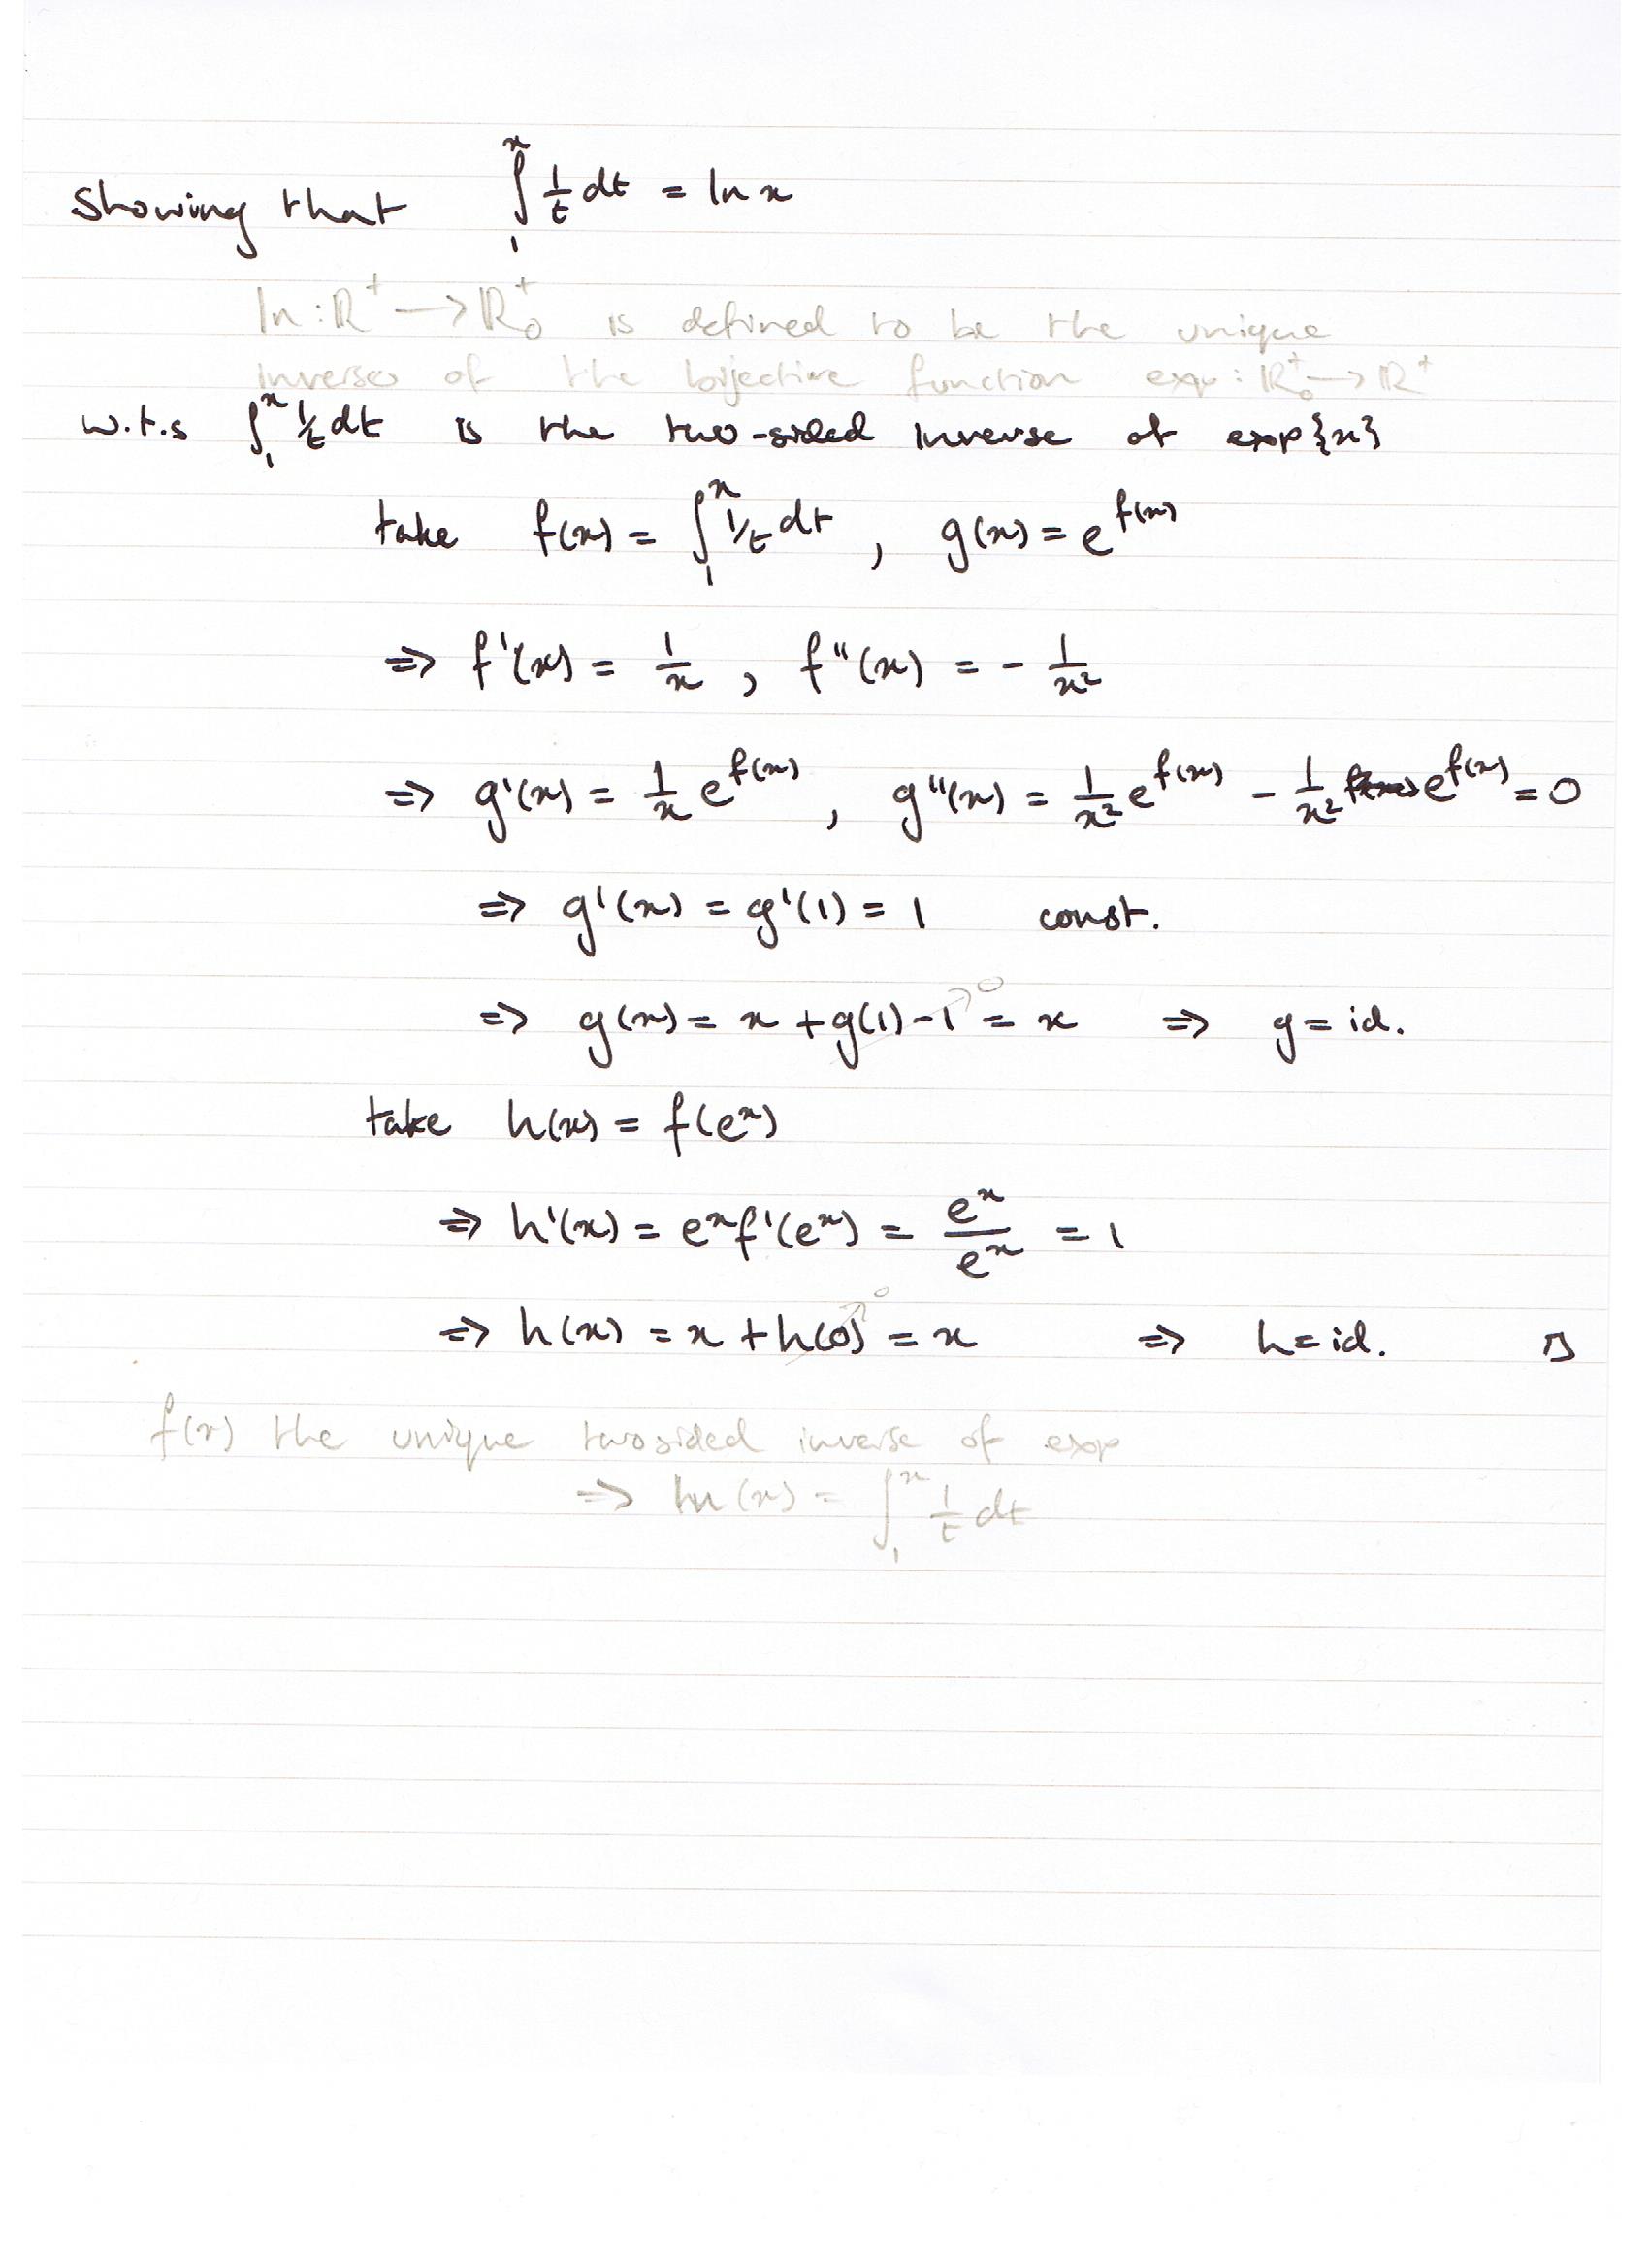 showing that ∫₁ˣ 1/t dt = ln x
ln : ℝ⁺ → ℝ₀⁺ is defined to be the unique
inverse of the bijective function exp : ℝ₀⁺ → ℝ⁺
w.t.s ∫₁ˣ 1/t dt is the two-sided inverse of exp{x}
take f(x) = ∫₁ˣ 1/t dt , g(x) = e^f(x)
⇒ f'(x) = 1/x , f''(x) = - 1/x²
⇒ g'(x) = 1/x e^f(x) , g''(x) = 1/x² e^f(x) - 1/x² e^f(x) = 0
⇒ g'(x) = g'(1) = 1 const.
⇒ g(x) = x + g(1) - 1 ↗0 = x ⇒ g = id.
take h(x) = f(eˣ)
⇒ h'(x) = eˣ f'(eˣ) = eˣ/eˣ = 1
⇒ h(x) = x + h(0) ↗0 = x ⇒ h = id. □
f(x) the unique two sided inverse of exp
⇒ ln(x) = ∫₁ˣ 1/t dt